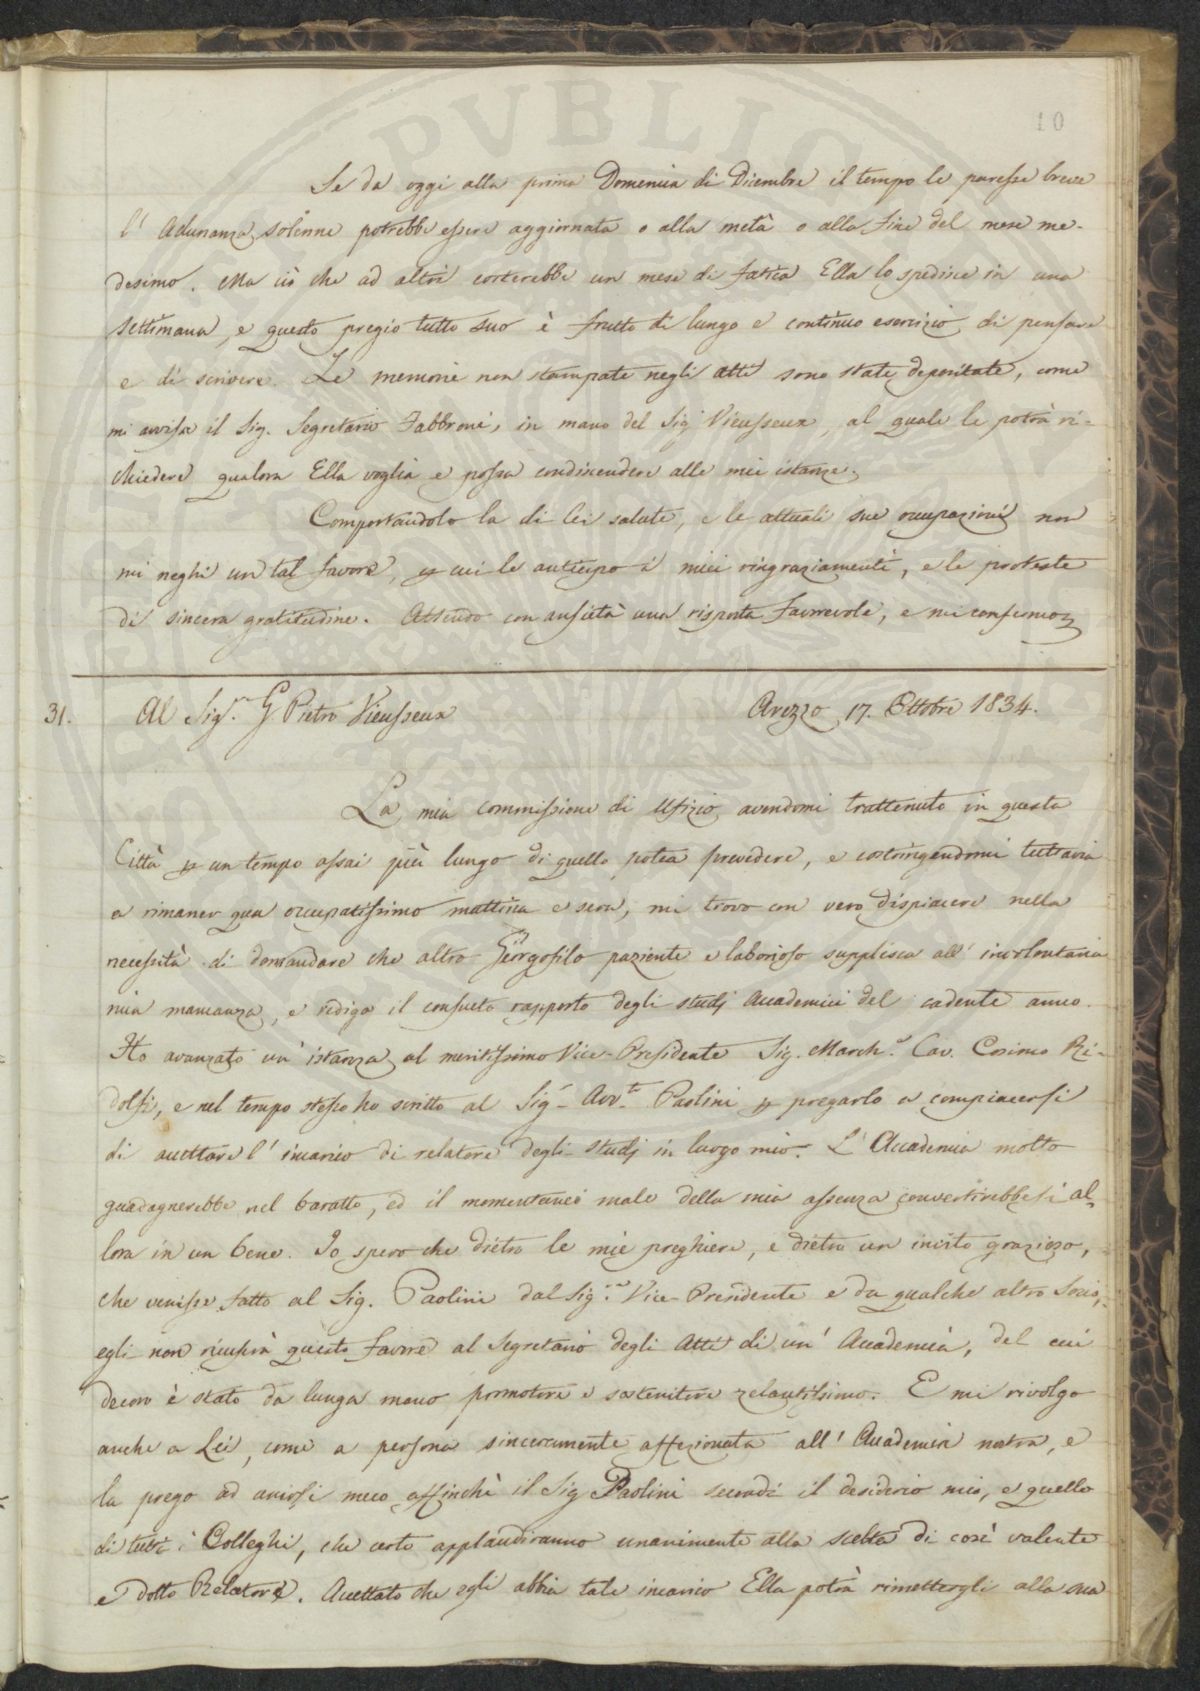 10
Se da oggi alla prima Domenica di Dicembre il tempo le paresse breve
l' Adunanza solenne potrebbe essere aggiornata o alla metà o alla fine del mese me-
desimo. Ma ciò che ad altri costerebbe un mese di fatica Ella lo spedisce in una
settimana, e questo pregio tutto suo è frutto di lungo e continuo esercizio di pensare
e di scrivere. Le memorie non stampate negli atti sono state depositate, come
mi avvisa il Sig. Segretario Fabbroni, in mano del Sig. Vieusseux, al quale le potrà ri-
chiedere qualora Ella voglia e possa condiscendere alle mie istanze.
Comportandolo la di lei salute, e le attuali sue occupazioni non
mi neghi un tal favore, p cui le anticipo i miei ringraziamenti, e le proteste
di sincera gratitudine. Attendo con ansietà una risposta favorevole, e mi confermo
31. Al Sig.re G Pietro Vieusseux Arezzo 17. Ottobre 1834.
La mia commissione di Ufizio avendomi trattenuto in questa
Città p un tempo assai più lungo di quello potea prevedere, e costringendomi tuttavia
a rimaner qua occupatissimo mattina e sera, mi trovo con vero dispiacere nella
necessità di domandare che altro Georgofilo paziente e laborioso supplisca all' involontaria
mia mancanza, e rediga il consueto rapporto degli studj Accademici del cadente anno.
Ho avanzato un' istanza al meritissimo Vice-Presidente Sig. March.e Cav. Cosimo Ri-
dolfi, e nel tempo stesso ho scritto al Sig.r Avv.to Paolini p pregarlo a compiacersi
di accettare l' incarico di relatore degli studj in luogo mio. L' Accademia molto
guadagnerebbe nel baratto, ed il momentaneo male della mia assenza convertirebbesi al-
lora in un bene. Io spero che dietro le mie preghiere, e dietro un invito grazioso,
che venisse fatto al Sig. Paolini dal Sig.re Vice-Presidente e da qualche altro Socio,
egli non ricuserà questo favore al Segretario degli Atti di un' Accademia, del cui
decoro è stato da lunga mano promotore e sostenitore zelantissimo. E mi rivolgo
anche a Lei, come a persona sinceramente affezionata all' Accademia nostra, e
la prego ad unirsi meco affinchè il Sig Paolini secondi il desiderio mio, e quello
di tutti i Colleghi, che certo applaudiranno unanimente alla scelta di così valente
e dotto Relatore. Accettato che egli abbia tale incarico Ella potrà rimettergli alla sua